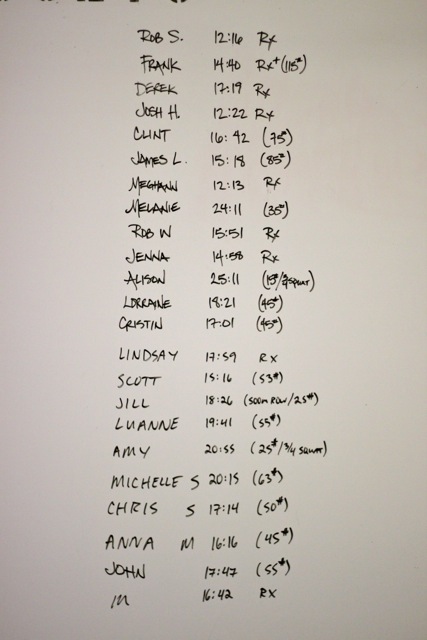 ROB S. 12:16 Rx
FRANK 14:40 Rx+ (115#)
DEREK 17:19 Rx
JOSH H. 12:22 Rx
CLINT 16:42 (75#)
JAMES L. 15:18 (85#)
MEGHANN 12:13 Rx
MELANIE 24:11 (35#)
ROB W 15:51 Rx
JENNA 14:58 Rx
ALISON 25:11 (15#/ squat)
LORRAINE 18:21 (45#)
CRISTIN 17:01 (45#)
LINDSAY 17:59 RX
SCOTT 15:16 (53#)
JILL 18:26 (500m ROW/25#)
LUANNE 19:41 (55#)
AMY 20:55 (25#/3/4 SQUAT)
MICHELLE S 20:15 (63#)
CHRIS S 17:14 (50#)
ANNA M 16:16 (45#)
JOHN 17:47 (55#)
M 16:42 RX